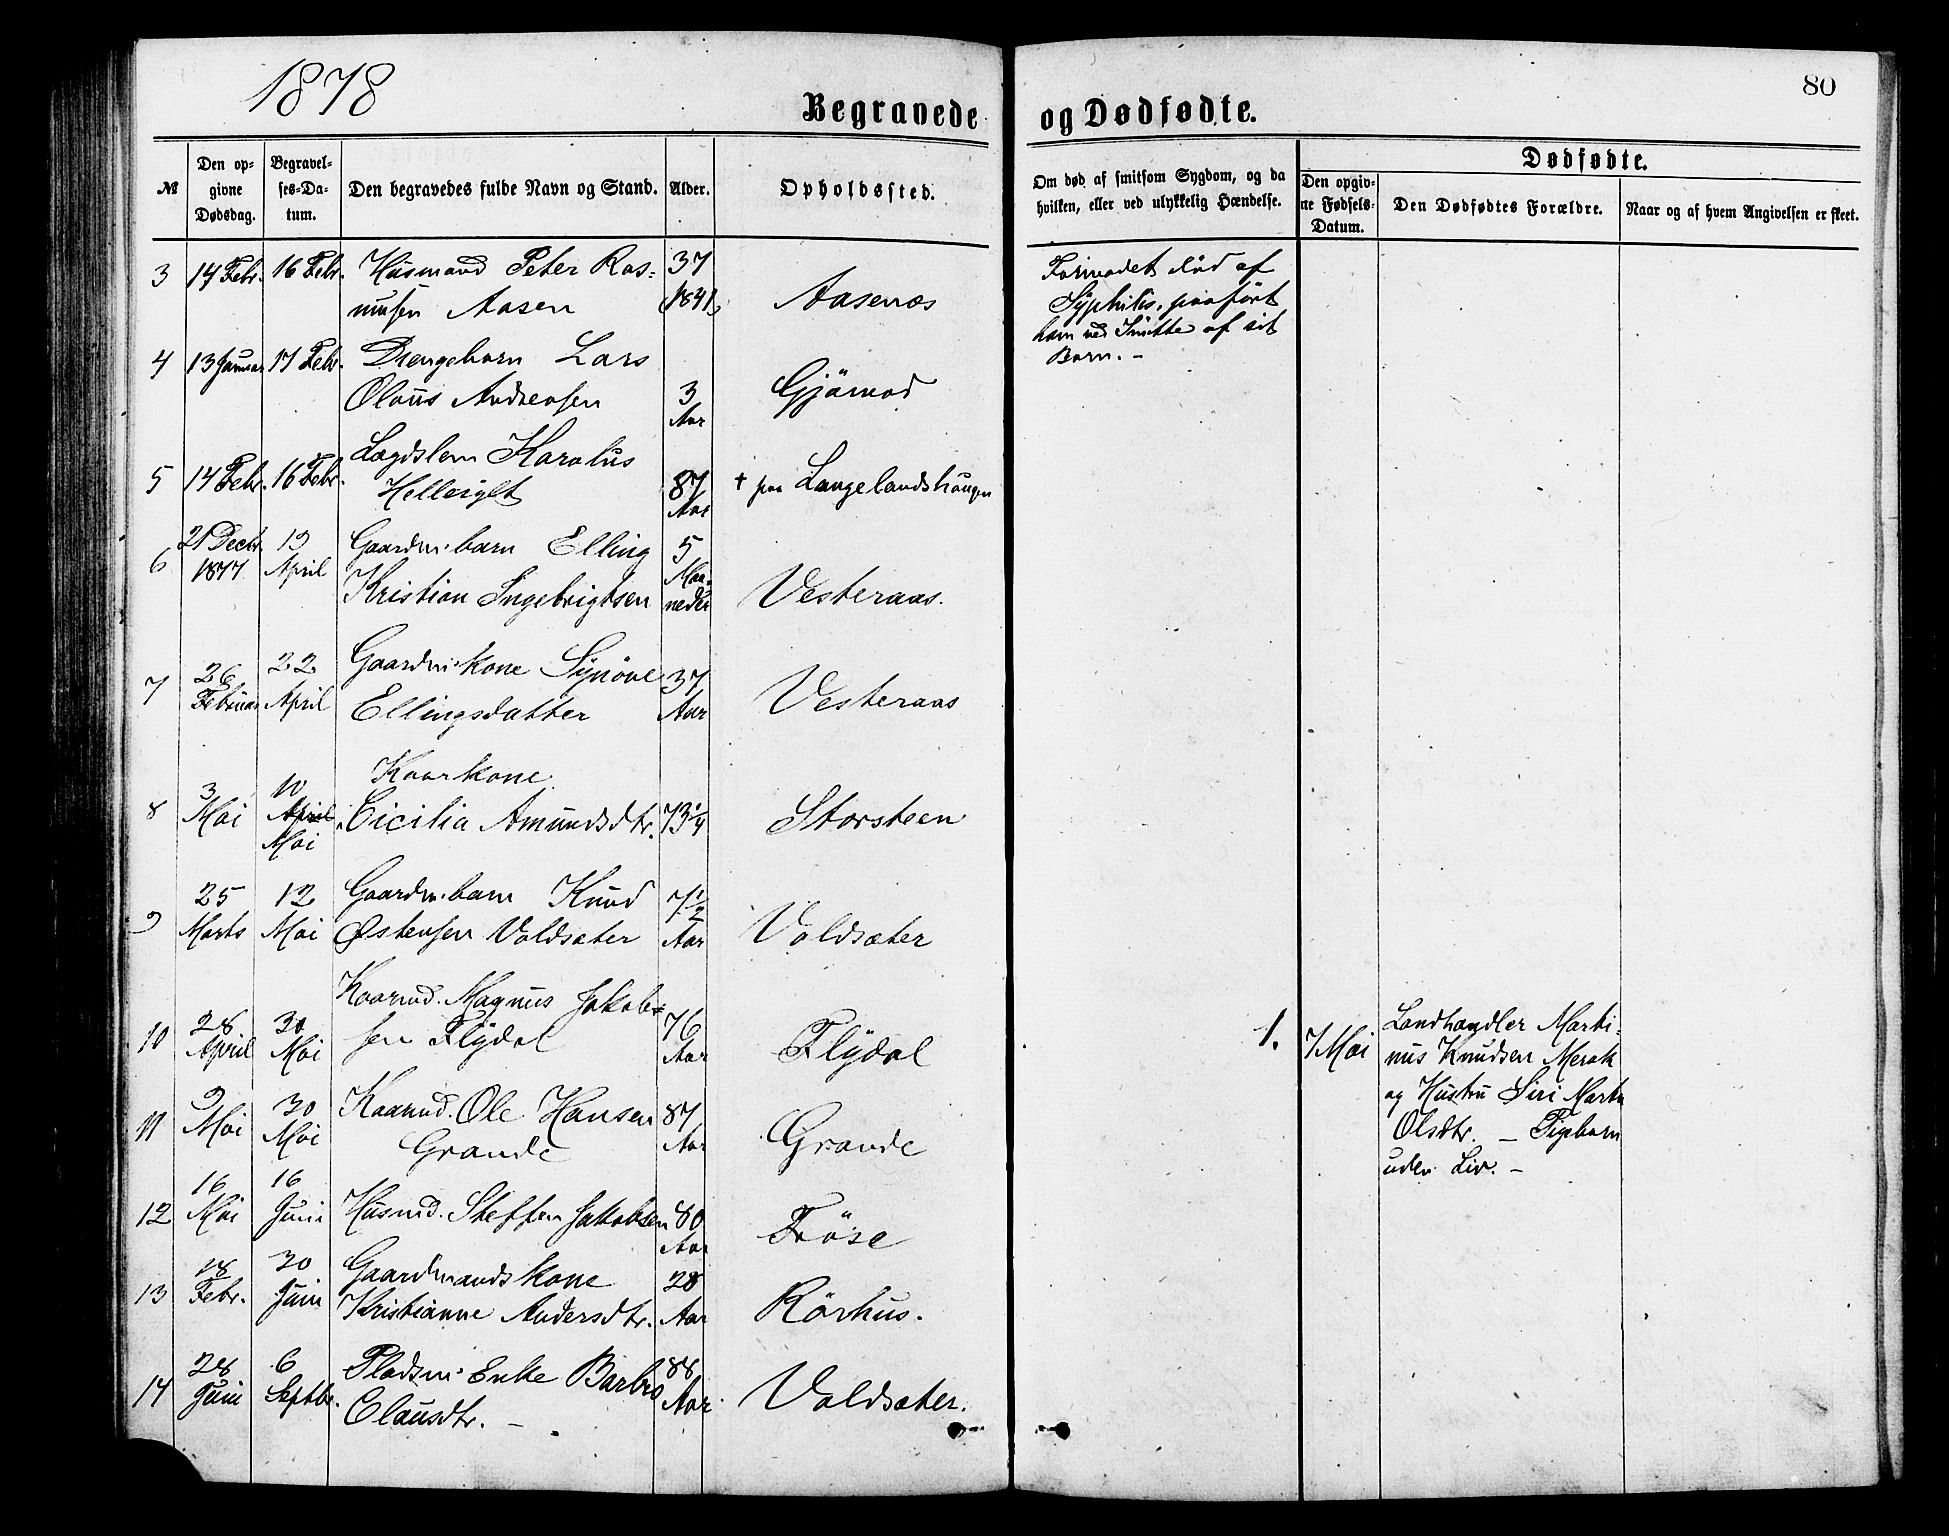 1878
80
Begravede og Dødfødte.
№
Den op-
givne
Dødsdag.
Begravel-
ses-Da-
tum.
Den begravedes fulde Navn og Stand.
Alder.
Opholdssted.
Om død af smitsom Sygdom, og da
hvilken, eller ved ulykkelig Hændelse.
Dødfødte.
Den opgiv-
ne Fødsels-
Datum.
Den Dødfødtes Forældre.
Naar og af hvem Angivelsen er skeet.
3 14 Febr. 16 Febr. Husmand Peter Ras- 37
musen Aasen (1841) Aasenæs
Formodet död af
Syphilis, paafört
ham ved Smitte af sit
Barn. –
4 13 Januar 17 Febr. Drengebarn Lars
Olaus Andreasen 3 Gjörvad
Aar
5 14 Febr. 16 Febr. Lægdslem Karolus
Hellesylt 87 † paa Langelandshaugen
Aar
6 21 Decbr. 19 Gaardm. barn Elling 5
1877 April Kristian Ingebrigtsen Maa-
neder Vesteraas.
7 26 22 Gaardm. kone Synöve 37
Februar April Ellingsdatter Aar Vesteraas
Kaarkone
8 3 10
Mai April Cicilia Amundsdtr. 73 1/4 Storsteen
Mai
9 25 12 Gaardm. barn Knud 7 1/2
Marts Mai Østensen Voldsæter Aar Voldsæter
Kaarmd. Magnus Jakob-
10 28 30 sen Flydal 76
April Mai Aar Flydal
11 9 30 Kaarmd. Ole Hansen 87
Mai Mai Grande Aar Grande
12 16 16
Mai Juni Husmd. Steffen Jakobsen 80
Aar Fröse
13 18 30 Gaardmandskone 28
Febr. Juni Kristianne Andersdtr. Aar Rörhus.
14 28 6 Pladsm. Enke Barbro 88
Juni Septbr. Clausdtr. – Aar Voldsæter.
1. 7 Mai
Landhandler Marti-
nus Knudsen Merok
og Hustru Siri Marta
Olsdtr. – Pigebarn
uden Liv. –